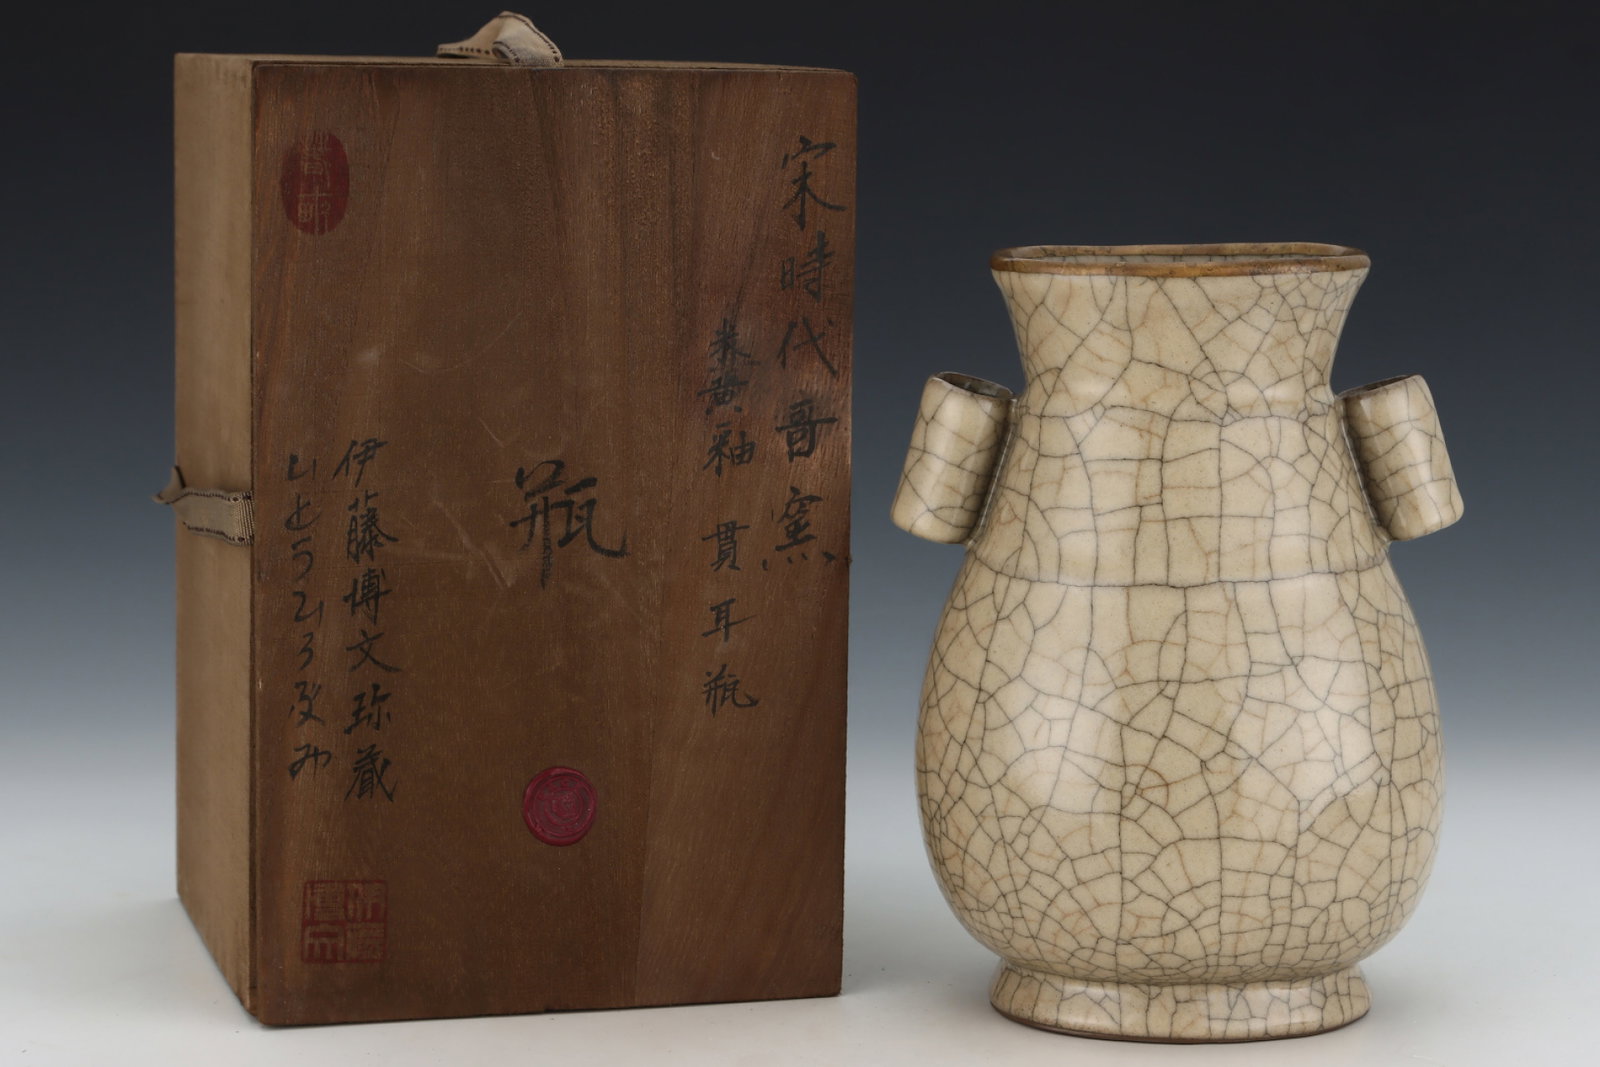 宋時代哥窯
米黄釉貫耳瓶
瓶
伊藤博文珎藏
いとうひろぶみ